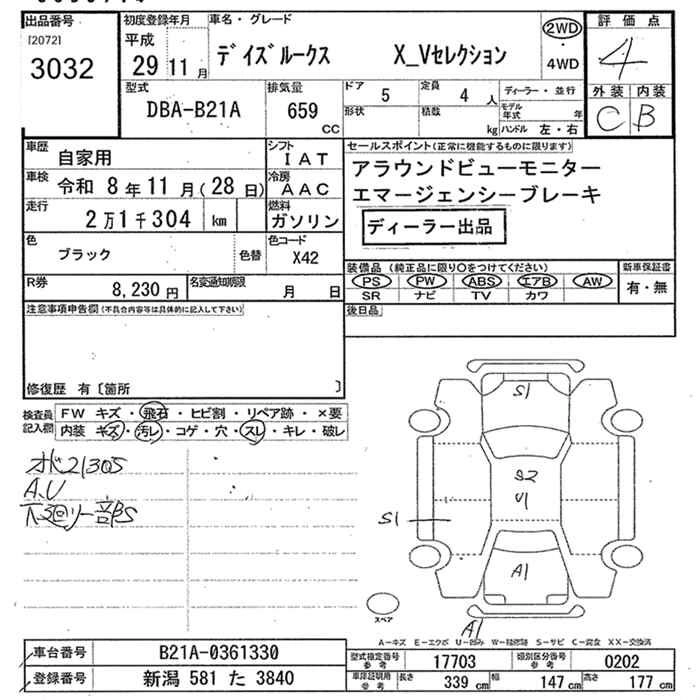 出品番号
[2072]
3032
初度登録年月
平成
29 11 月
車名・グレード
デイズルークス X_Vセレクション
2WD
・
4WD
評価点
4
外装 内装
C B
型式
DBA-B21A
排気量
659
CC
ドア
5
定員
4 人
形状
積数
kg
ディーラー・並行
モデル年式 年
ハンドル 左・右
車歴
自家用
シフト
IAT
車検
令和 8年 11月(28日)
冷房
AAC
走行
2万1千304 km
燃料
ガソリン
色
ブラック
色替
色コード
X42
R券
8,230 円
名変通知期限
月 日
セールスポイント(正常に機能するものに限ります)
アラウンドビューモニター
エマージェンシーブレーキ
ディーラー出品
装備品 (純正品に限り○をつけてください)
PS PW ABS エアB AW
SR ナビ TV カワ
新車保証書
有・無
注意事項申告欄(不具合内容等は具体的に記入して下さい)
後日品
修復歴 有〔箇所 〕
検査員
記入欄
FW キズ・飛石・ヒビ割・リペア跡・×要
内装 キズ・汚レ・コゲ・穴・スレ・キレ・破レ
オド21305
A.U
下廻リ一部S
S1
S2
U1
S1
A1
A1
スペア
A-キズ E-エクボ U-凹み W-補修跡 S-サビ C-腐食 XX-交換済
車台番号
B21A-0361330
登録番号
新潟 581 た 3840
型式指定番号
参考
17703
類別区分番号
参考
0202
車庫証明用
参考
長さ
339 cm
幅
147 cm
高さ
177 cm